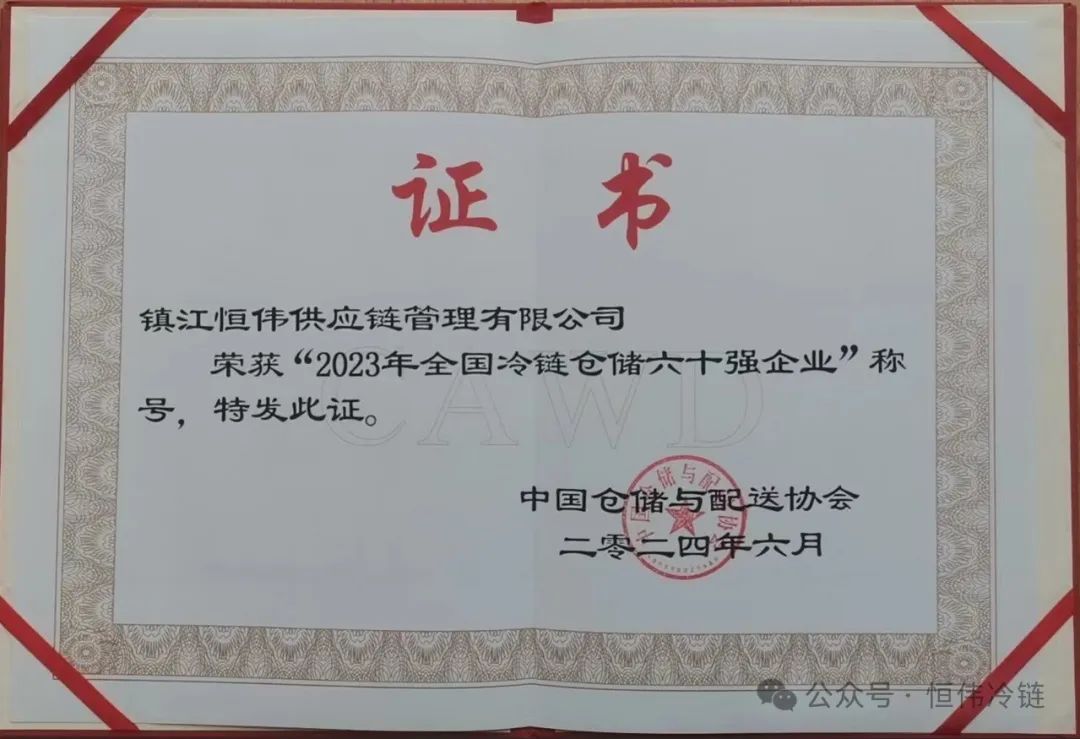 证书
镇江恒伟供应链管理有限公司
荣获“2023年全国冷链仓储六十强企业”称
号，特发此证。
CAWD
中国仓储与配送协会
二零二四年六月
中国仓储与配送协会
公众号·恒伟冷链